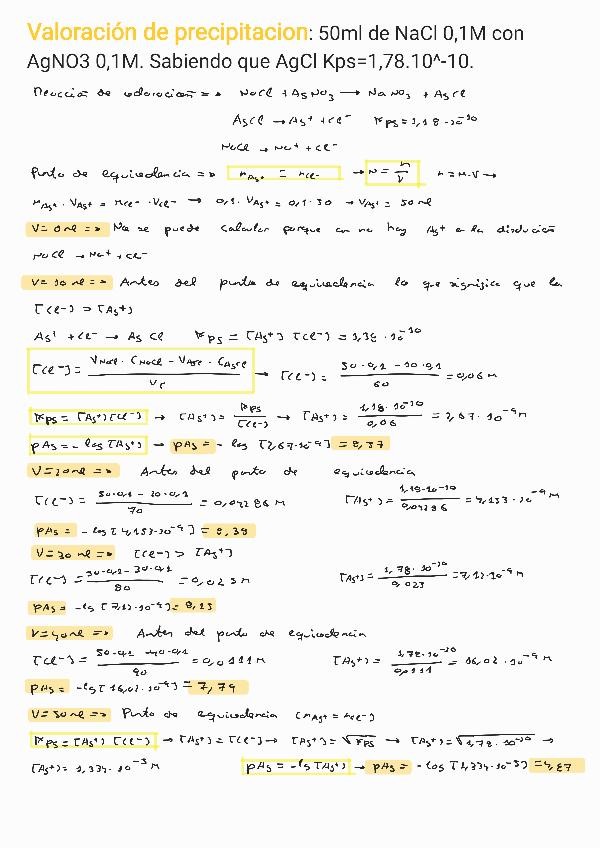 Valoración de precipitacion: 50ml de NaCl 0,1M con
AgNO3 0,1M. Sabiendo que AgCl Kps=1,78.10^-10.
Reacción de valoración => NaCl + AgNO₃ → NaNO₃ + AgCl
AgCl → Ag⁺ + Cl⁻ Kps = 1,78·10⁻¹⁰
NaCl → Na⁺ + Cl⁻
Punto de equivalencia => nAg⁺ = nCl⁻ → M = n/V n = M·V →
MAg⁺ · VAg⁺ = MCl⁻ · VCl⁻ → 0,1 · VAg⁺ = 0,1 · 50 → VAg⁺ = 50 ml
V = 0 ml => No se puede calcular porque aun no hay Ag⁺ en la disolución
NaCl → Na⁺ + Cl⁻
V = 10 ml => Antes del punto de equivalencia lo que significa que la
[Cl⁻] > [Ag⁺]
Ag⁺ + Cl⁻ → AgCl Kps = [Ag⁺] [Cl⁻] = 1,78 · 10⁻¹⁰
[Cl⁻] = (VNaCl · CNaCl − VAgCl · CAgCl) / VT → [Cl⁻] = (50·0,1 − 10·0,1) / 60 = 0,06 M
Kps = [Ag⁺] [Cl⁻] → [Ag⁺] = Kps / [Cl⁻] → [Ag⁺] = 1,78·10⁻¹⁰ / 0,06 = 2,67 · 10⁻⁹ M
pAg = − log [Ag⁺] → pAg = − log [2,67·10⁻⁹] = 8,57
V = 20 ml => Antes del punto de equivalencia
[Cl⁻] = (50·0,1 − 20·0,1) / 70 = 0,04286 M [Ag⁺] = 1,78·10⁻¹⁰ / 0,04286 = 4,153 · 10⁻⁹ M
pAg = −log [4,153·10⁻⁹] = 8,38
V = 30 ml => [Cl⁻] > [Ag⁺]
[Cl⁻] = (50·0,1 − 30·0,1) / 80 = 0,025 M [Ag⁺] = 1,78·10⁻¹⁰ / 0,025 = 7,12·10⁻⁹ M
pAg = −log [7,12·10⁻⁹] = 8,15
V = 40 ml => Antes del punto de equivalencia
[Cl⁻] = (50·0,1 − 40·0,1) / 90 = 0,0111 M [Ag⁺] = 1,78·10⁻¹⁰ / 0,0111 = 16,02 · 10⁻⁹ M
pAg = −log [16,02·10⁻⁹] = 7,79
V = 50 ml => Punto de equivalencia (nAg⁺ = nCl⁻)
Kps = [Ag⁺] [Cl⁻] → [Ag⁺] = [Cl⁻] → [Ag⁺] = √Kps → [Ag⁺] = √1,78·10⁻¹⁰ →
[Ag⁺] = 1,334·10⁻⁵ M pAg = −log [Ag⁺] → pAg = −log [1,334·10⁻⁵] = 4,87